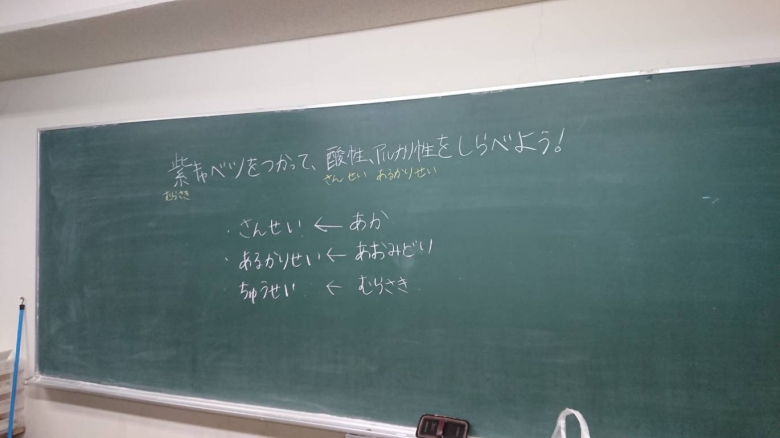 紫キャベツをつかって、酸性、アルカリ性をしらべよう!
むらさき さんせい あるかりせい
・さんせい ← あか
・あるかりせい ← あおみどり
ちゅうせい ← むらさき